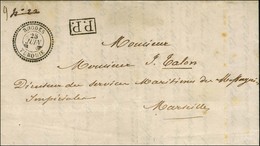 RHODES
23
JUIN
P.P.
Monsieur
Monsieur J. Talon
Directeur des services Maritimes des Messageries
Impériales
Marseille